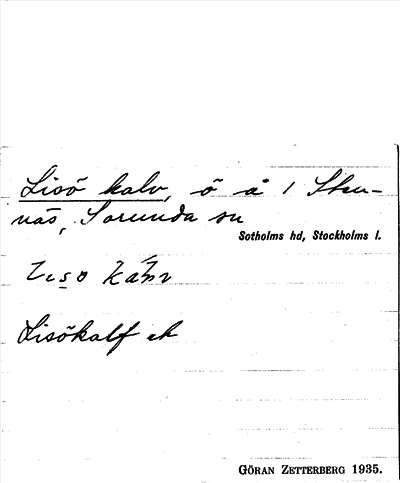 Lisö kalv, ö å 1 Sten-
näs, Sorunda sn
Sotholms hd, Stockholms l.
Lisökalf ek
GÖRAN ZETTERBERG 1935.